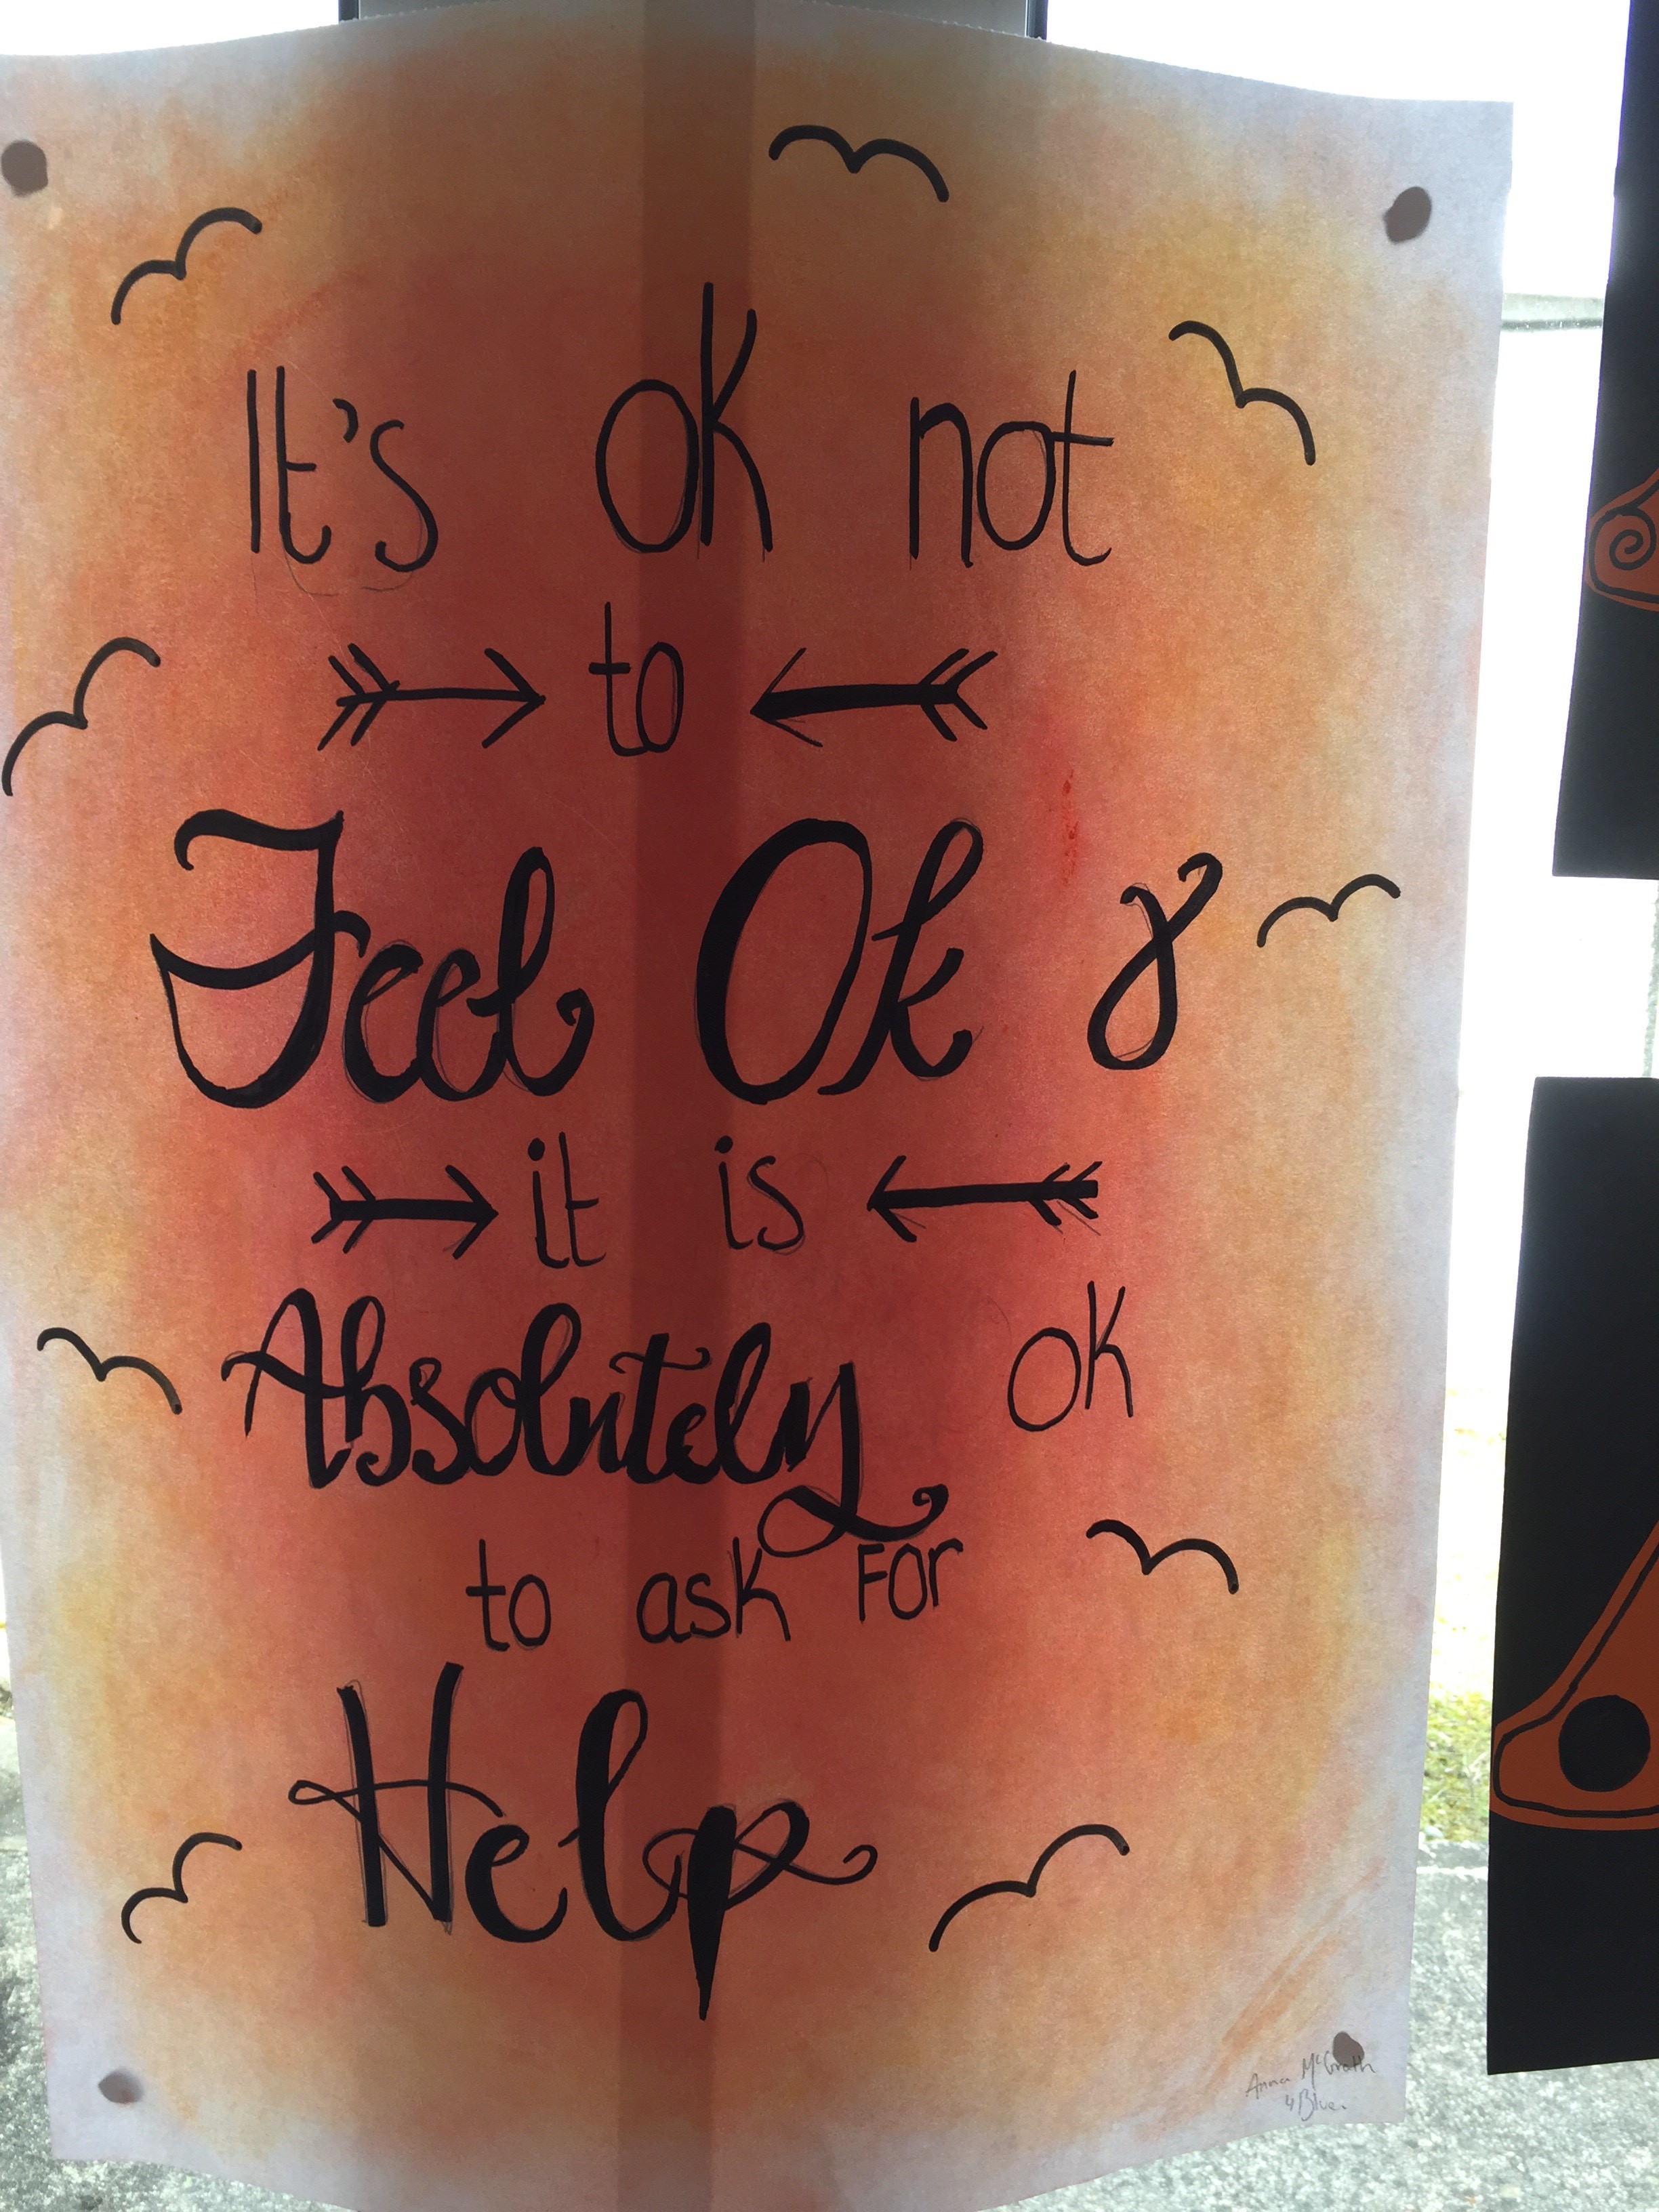 It's ok not
to
Feel Ok &
it is
Absolutely ok
to ask For
Help
Anna McGrath
4Blue